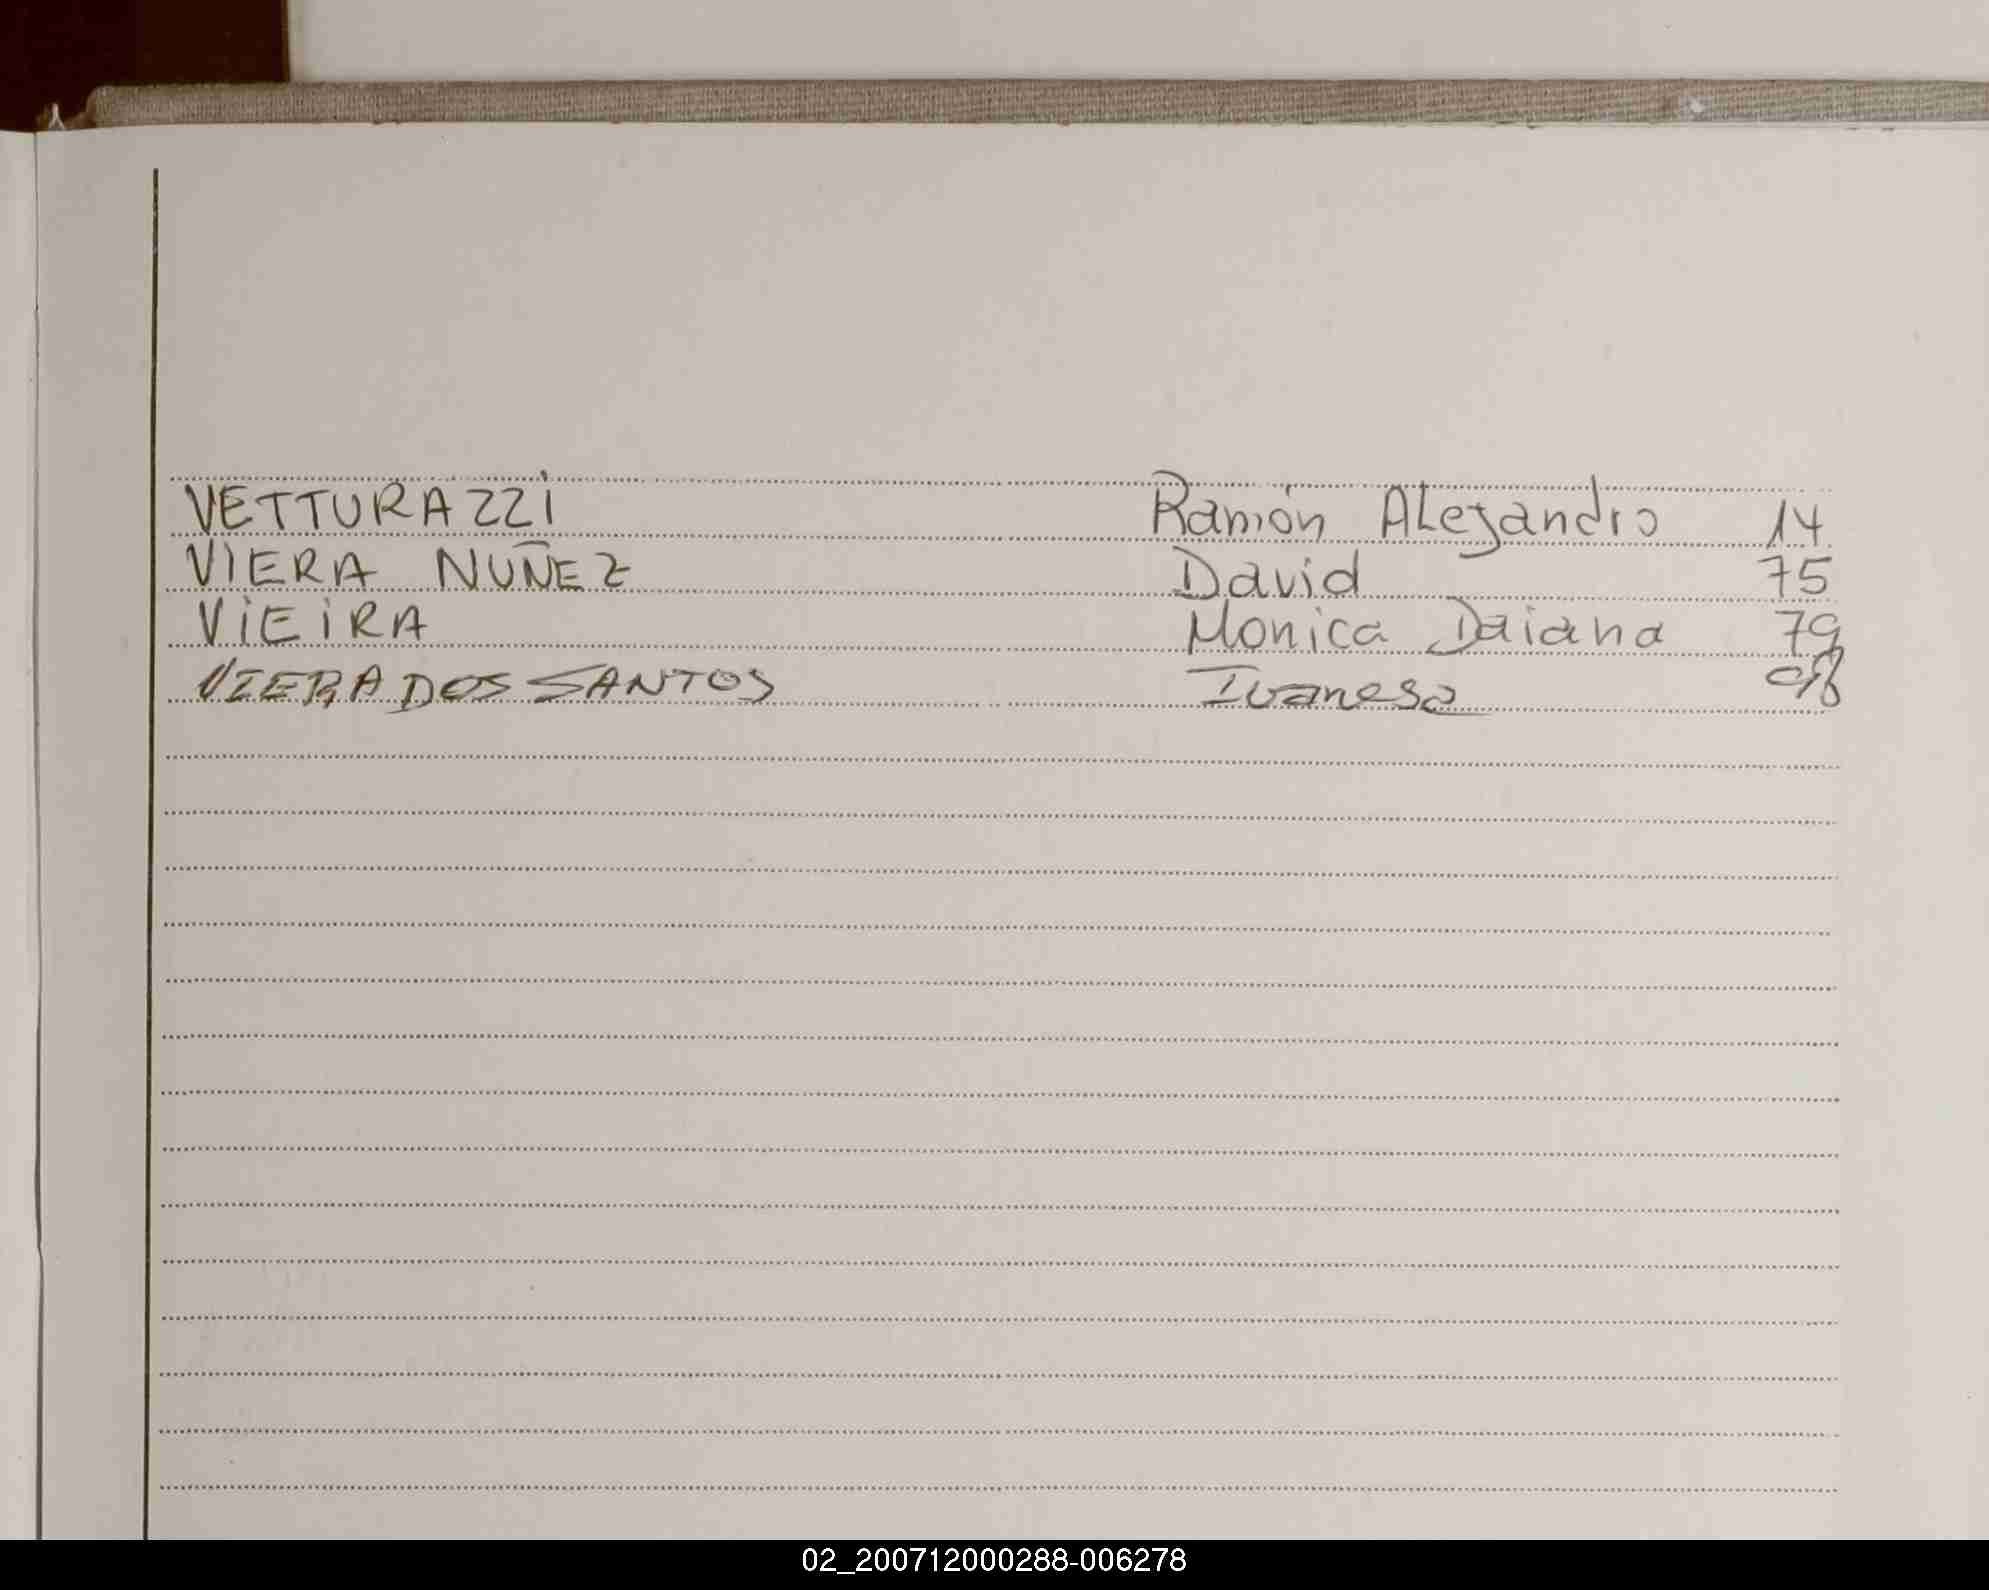 VETTURAZZI Ramón Alejandro 14
VIERA NUÑEZ David 75
VIEIRA Monica Daiana 79
VIERA DOS SANTOS Ivanesa 98
02_200712000288-006278